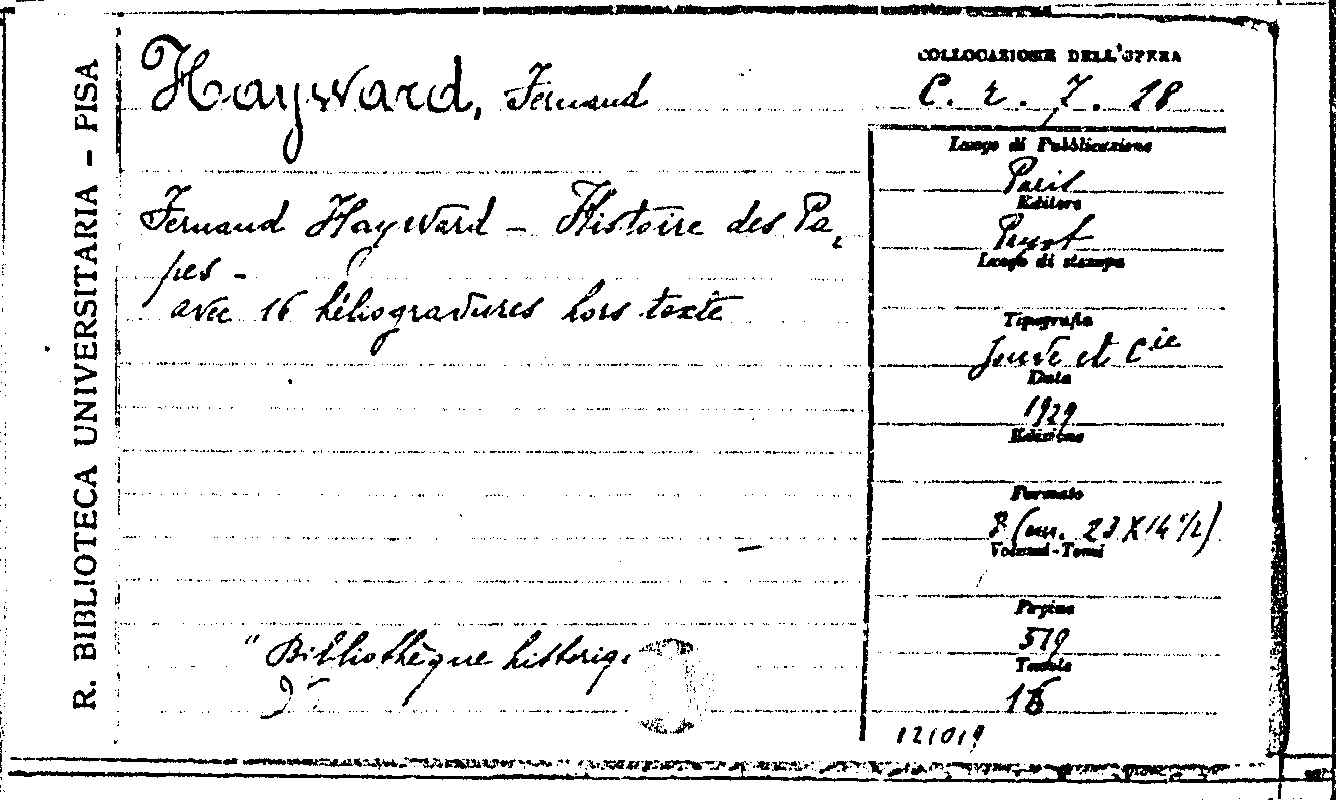 R. BIBLIOTECA UNIVERSITARIA - PISA
Hayward, Fernand
COLLOCAZIONE DELL'OPERA
C. r. 7. 18
Fernand Hayward - Histoire des Pa,
pes -
avec 16 héliogravures hors texte
"Bibliothèque historiq
Luogo di Pubblicazione
Paris
Editore
Payot
Luogo di stampa
Tipografia
Jouve et Cie
Data
1929
Edizione
Formato
8 (cm. 23 X 14 1/2)
Volumi-Tomi
Pagine
519
Tavole
16
121019